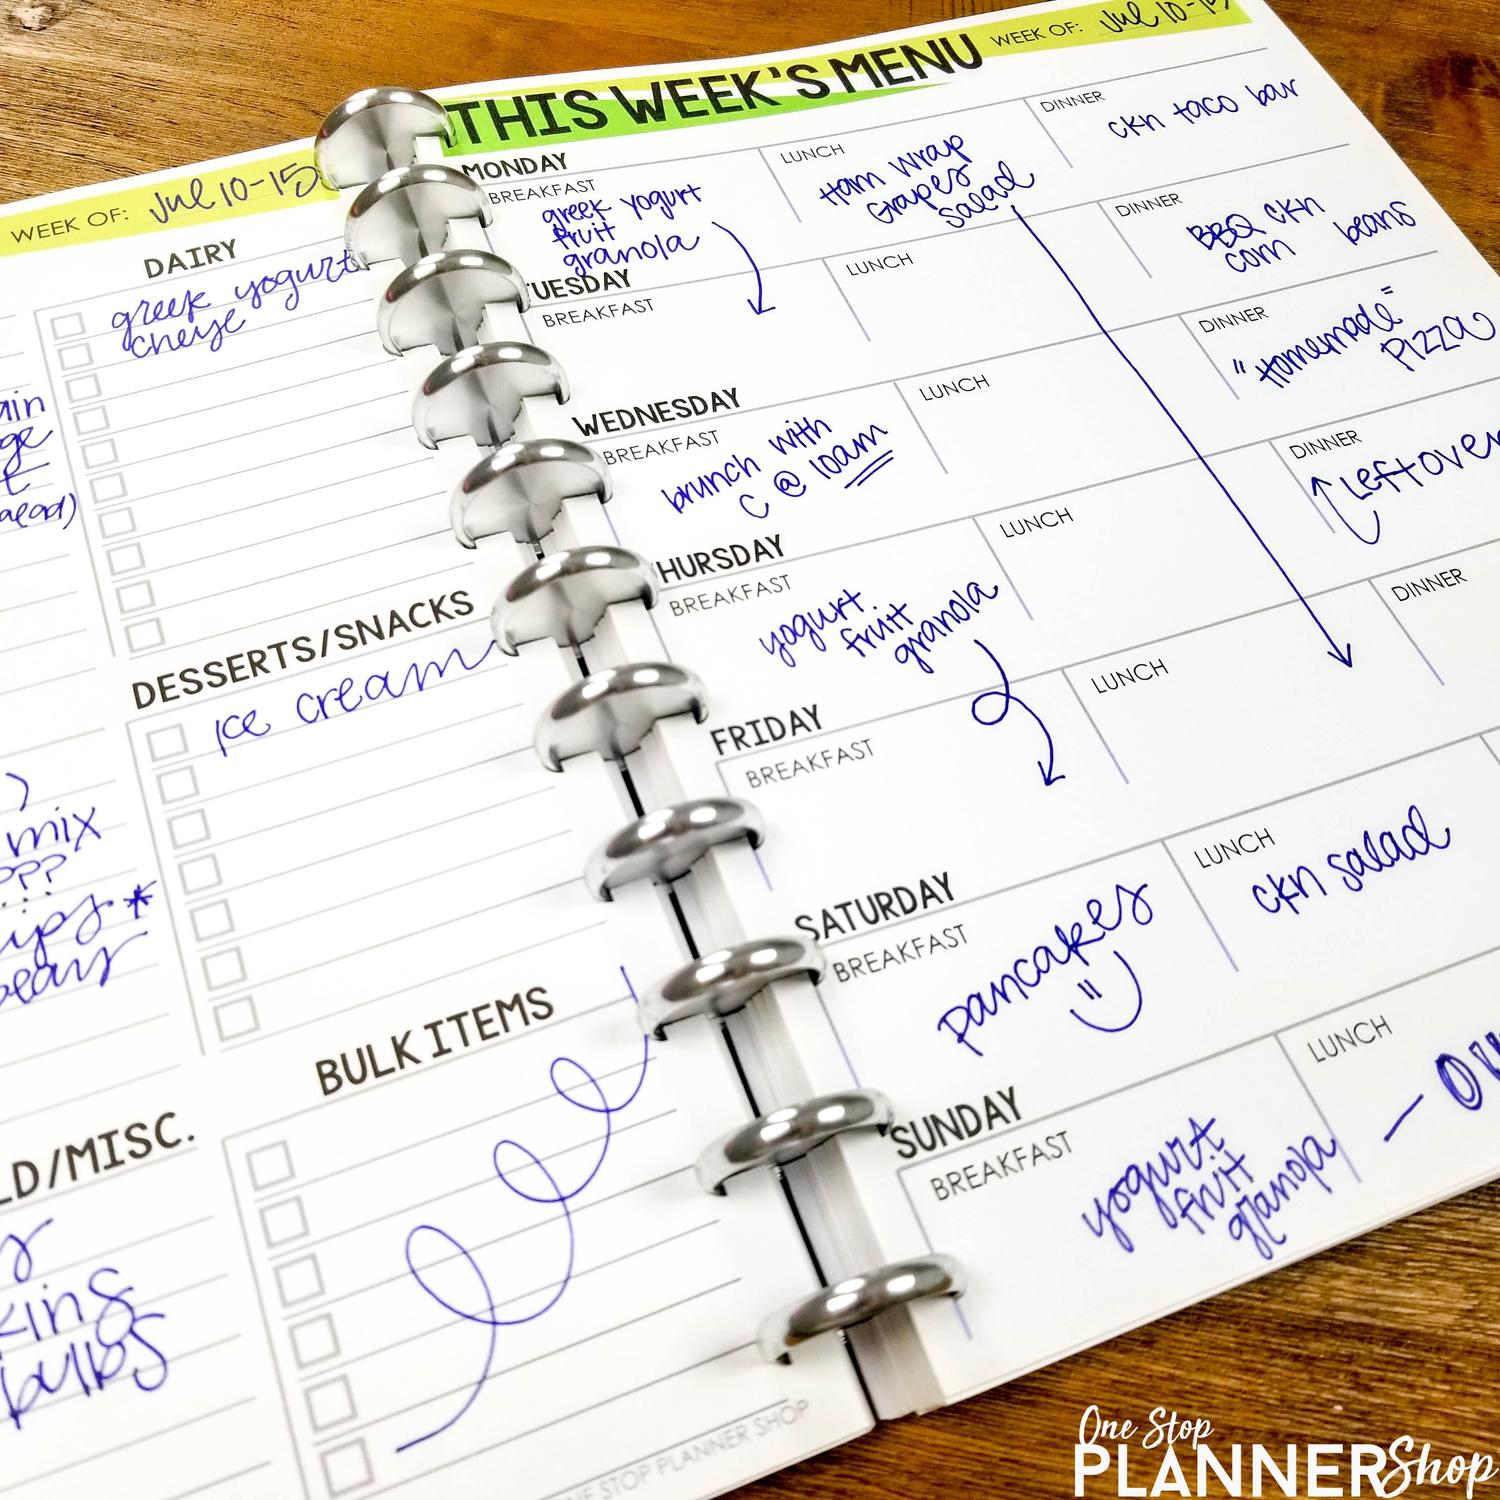 WEEK OF: Jul 10-15
DAIRY
greek yogurt
cheese
DESSERTS/SNACKS
Ice cream
BULK ITEMS
mix
???
LD/MISC.
bulbs
ONE STOP PLANNER SHOP
THIS WEEK'S MENU
WEEK OF: Jul 10-15
MONDAY
BREAKFAST
greek yogurt
fruit
granola
LUNCH
Ham wrap
Grapes
Salad
DINNER
ckn taco bar
TUESDAY
BREAKFAST
LUNCH
DINNER
BBQ ckn
corn beans
WEDNESDAY
BREAKFAST
brunch with
C @ 10am
LUNCH
DINNER
"Homemade"
Pizza
THURSDAY
BREAKFAST
yogurt
fruit
granola
LUNCH
DINNER
Leftover
FRIDAY
BREAKFAST
LUNCH
DINNER
SATURDAY
BREAKFAST
pancakes
LUNCH
ckn salad
SUNDAY
BREAKFAST
yogurt
fruit
granola
LUNCH
One Stop
PLANNERShop